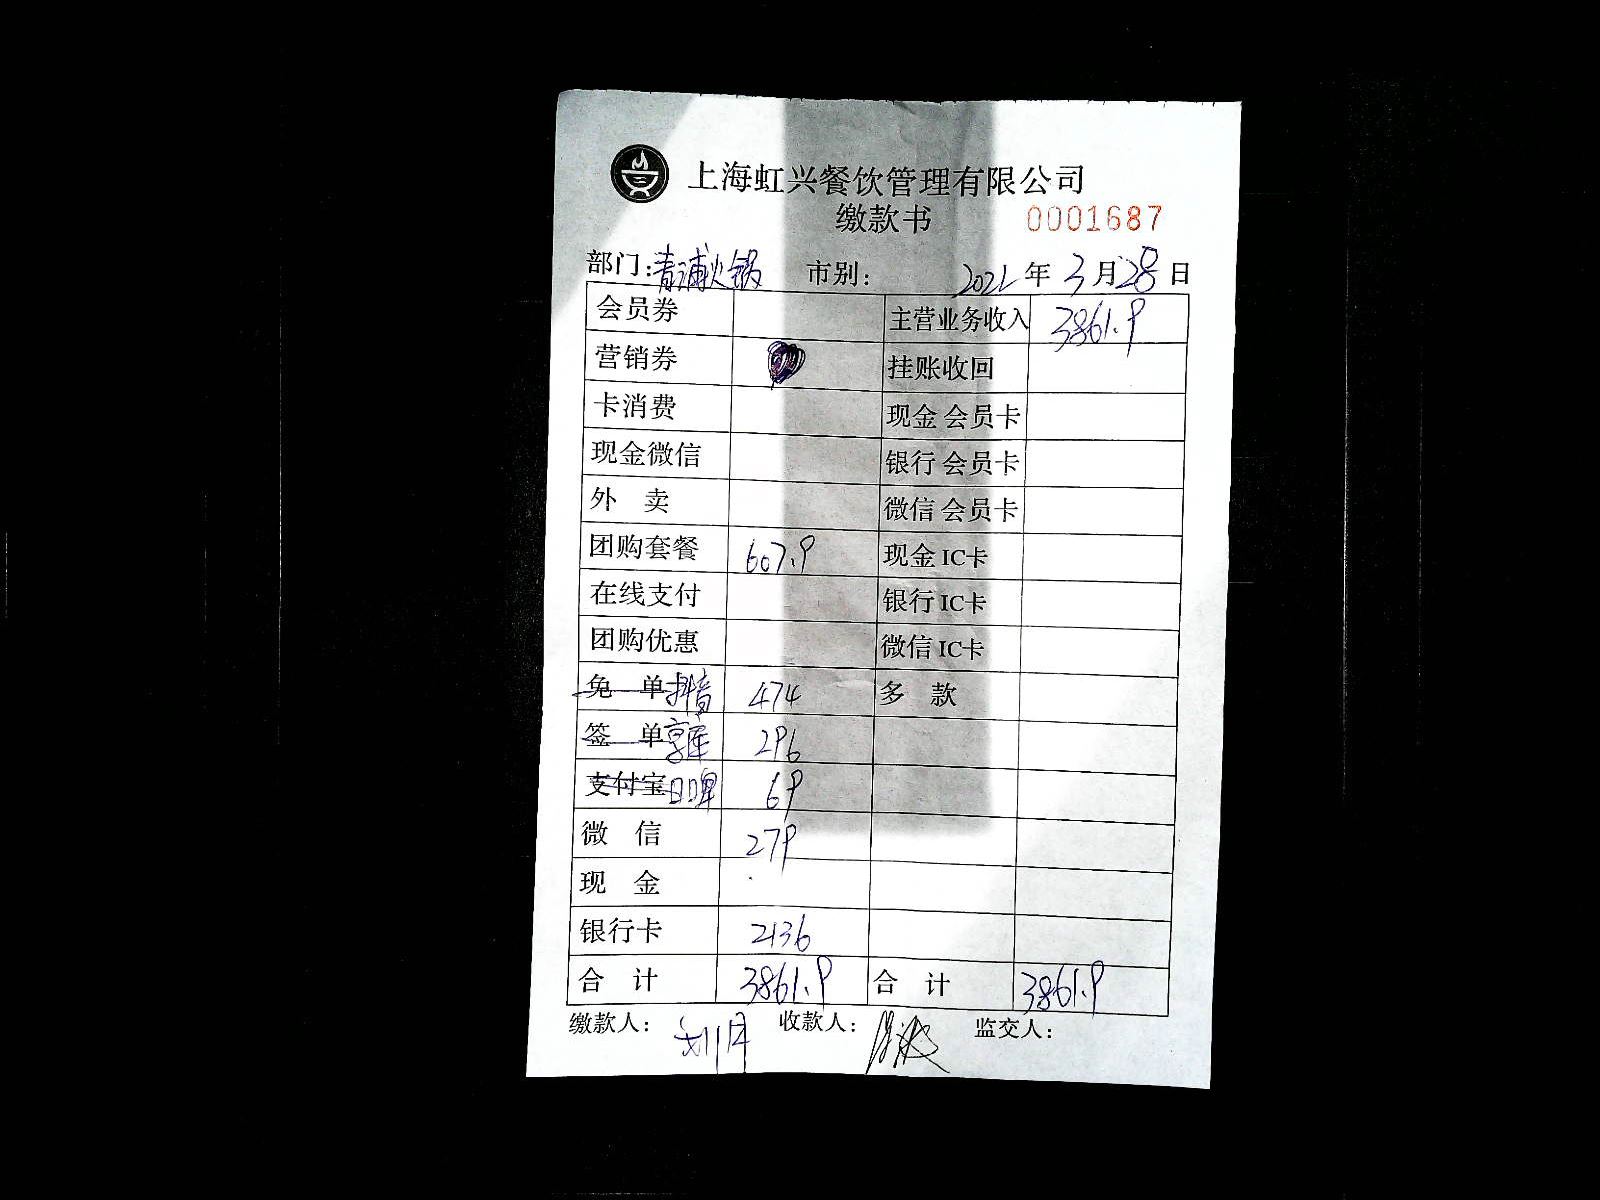 上海虹兴餐饮管理有限公司
缴款书 0001687
部门：青浦火锅 市别： 2022 年 3 月 28 日
会员券 主营业务收入 3861.9
营销券 挂账收回
卡消费 现金 会员卡
现金微信 银行 会员卡
外 卖 微信 会员卡
团购套餐 607.9 现金 IC卡
在线支付 银行 IC卡
团购优惠 微信 IC卡
免 单 抖音 474 多 款
签 单 享库 296
支付宝 日啤 69
微 信 279
现 金
银行卡 2136
合 计 3861.9 合 计 3861.9
缴款人： 刘 收款人： 监交人：